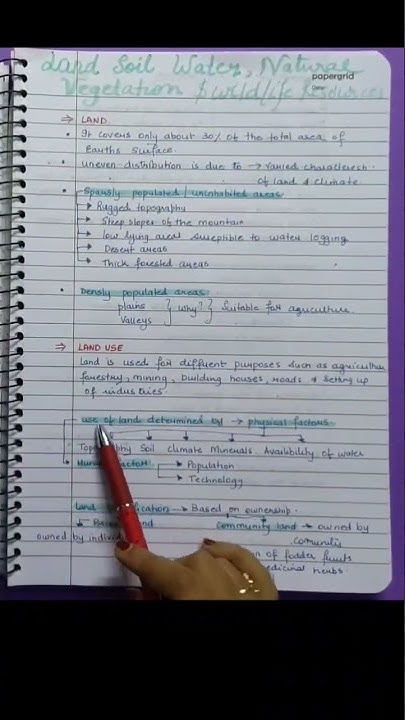 Land Soil Water, Natural
papergrid
Vegetation & wildlife Resources
⇒ LAND
• It covers only about 30% of the total area of
Earths Surface
• uneven distribution is due to → Varied characteresh.
of land & climate
• Spausly populated / uninhabited areas
→ Rugged topography
→ Steep slopes of the mountain
→ low lying areas suseptible to water logging
→ Desert areas
→ Thick forested areas
• Densly populated areas
plains } why? } Suitable for agriculture
Valleys
⇒ LAND USE
Land is used for diffuent purposes such as agriculture
forestry, mining, building houses, roads & setting up
of industries
use of land determined by → physical factors
Topography Soil climate Minerals Availability of water
• Human factors → Population
→ Technology
Land → Based on ownership.
community land → owned by
owned by comunitis
of fodder fruits
herbs